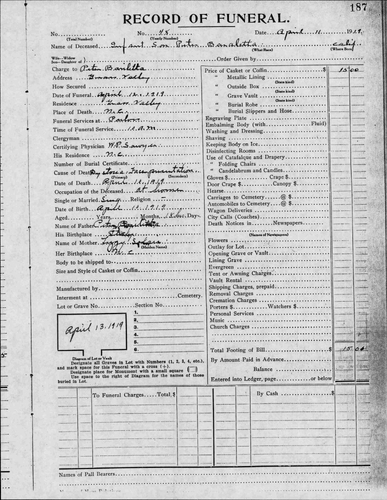 187
RECORD OF FUNERAL.
No. No. 48 Date April 11 1919
(Total Number) (Yearly Number)
Name of Deceased Infant Son Peter Calif.
(Where Born)
Wife-Widow
Son-Daughter of Order Given by
Charge to Peter
Address Valley
How Secured
Date of Funeral April 12, 1919
Residence Valley
Place of Death N.C.
Funeral Services at Parlors
Time of Service 10 A.M.
Clergyman
Certifying Physician W.P.
His Residence N.C.
Number of Burial Certificate
Cause of Death
(Primary) (Secondary)
Date of Death April 11, 1919
Occupation of the Deceased At home
Single or Married Single Religion
Date of Birth April 11, 1919
Aged Years Months Days
Name of Father Peter
His Birthplace
Name of Mother
(Maiden Name)
Her Birthplace N.C.
Body to be shipped to
Size and Style of Casket or Coffin
Manufactured by
Interment at Cemetery.
Lot or Grave No. Section No.
April 13, 1919
1
2
3
4
5
6
Diagram of Lot or Vault
Designate all Graves in Lot with Numbers (1, 2, 3, 4, etc.), and mark space for this Funeral with a cross (+).
Designate place for Monument with a small square
Use space to the right of Diagram for the names of those buried in Lot.
Price of Casket or Coffin 15.00
" Metallic Lining
" Outside Box
" Grave Vault
" Burial Robe
" Burial Slippers and Hose
Engraving Plate
Embalming Body (with Fluid)
Washing and Dressing
Shaving
Keeping Body on Ice
Disinfecting Rooms
Use of Catafalque and Drapery
" Folding Chairs
" Candelabrum and Candles
Gloves $ Crepe $
Door Crape $ Canopy $
Hearse
Carriages to Cemetery @ $
Automobiles to Cemetery @ $
Wagon Deliveries
City Calls (Coaches)
Death Notices in Newspapers
(Names of Newspapers)
Flowers
Outlay for Lot
Opening Grave or Vault
Lining Grave
Evergreen
Tent or Awning Charges
Vault Rental
Shipping Charges, prepaid
Removal Charges
Cremation Charges
Porters $ Watchers $
Personal Services
Music
Church Charges
Total Footing of Bill 15.00
By Amount Paid in Advance
Balance
Entered into Ledger, page or below
To Funeral Charges Total $
By Cash $
Names of Pall Bearers